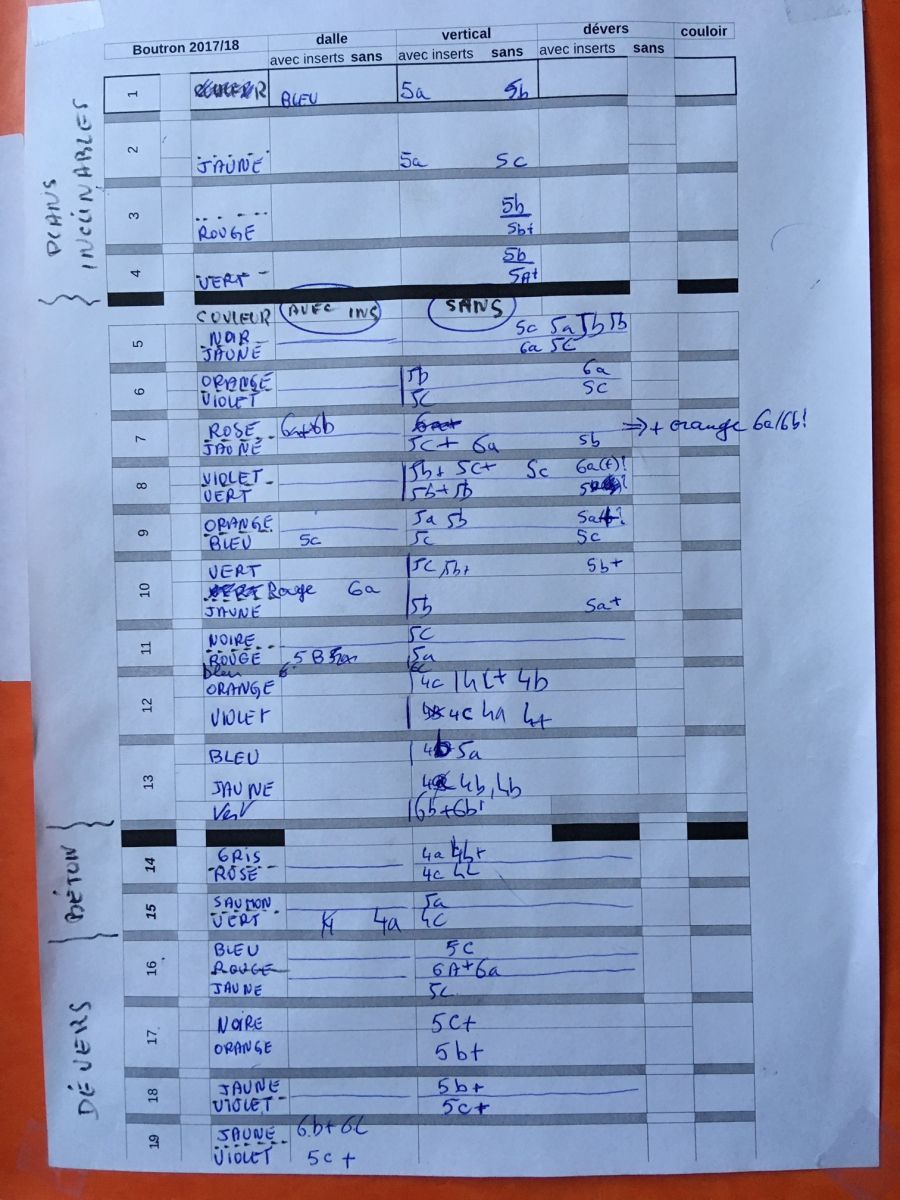 Boutron 2017/18 dalle vertical dévers couloir
avec inserts sans avec inserts sans avec inserts sans
PLANS INCLINABLES
1 BLEU 5a 5b
2 JAUNE 5a 5c
3 5b
ROUGE 5b+
4 5b
VERT 5A+
COULEUR AVEC INS SANS
5 NOIR 5c 5a 5b 5b
JAUNE 6a 5C
6 ORANGE 5b 6a
VIOLET 5C 5c
7 ROSE 6a+6b => + orange 6a/6b!
JAUNE 5C+ 6a 5b
8 VIOLET 5b+ 5C+ 5c 6a(+)!
VERT 5b+5b
9 ORANGE 5a 5b
BLEU 5c 5c 5c
10 VERT 5C,5b+ 5b+
Rouge 6a
JAUNE 5b 5a+
11 NOIRE 5C
ROUGE 5 B 5a
bleu 6
12 ORANGE 4c 4c+ 4b
VIOLET 4c 4a 4+
13 BLEU 5a
JAUNE 4b,4b
Vert 6b+6b!
BÉTON
14 GRIS 4a 4b+
ROSE 4c 4c
15 SAUMON 5a
VERT 4a 4C
DÉVERS
16 BLEU 5C
ROUGE 6A+6a
JAUNE 5C
17 NOIRE 5C+
ORANGE 5b+
18 JAUNE 5b+
VIOLET 5c+
19 JAUNE 6b+6C
VIOLET 5c+